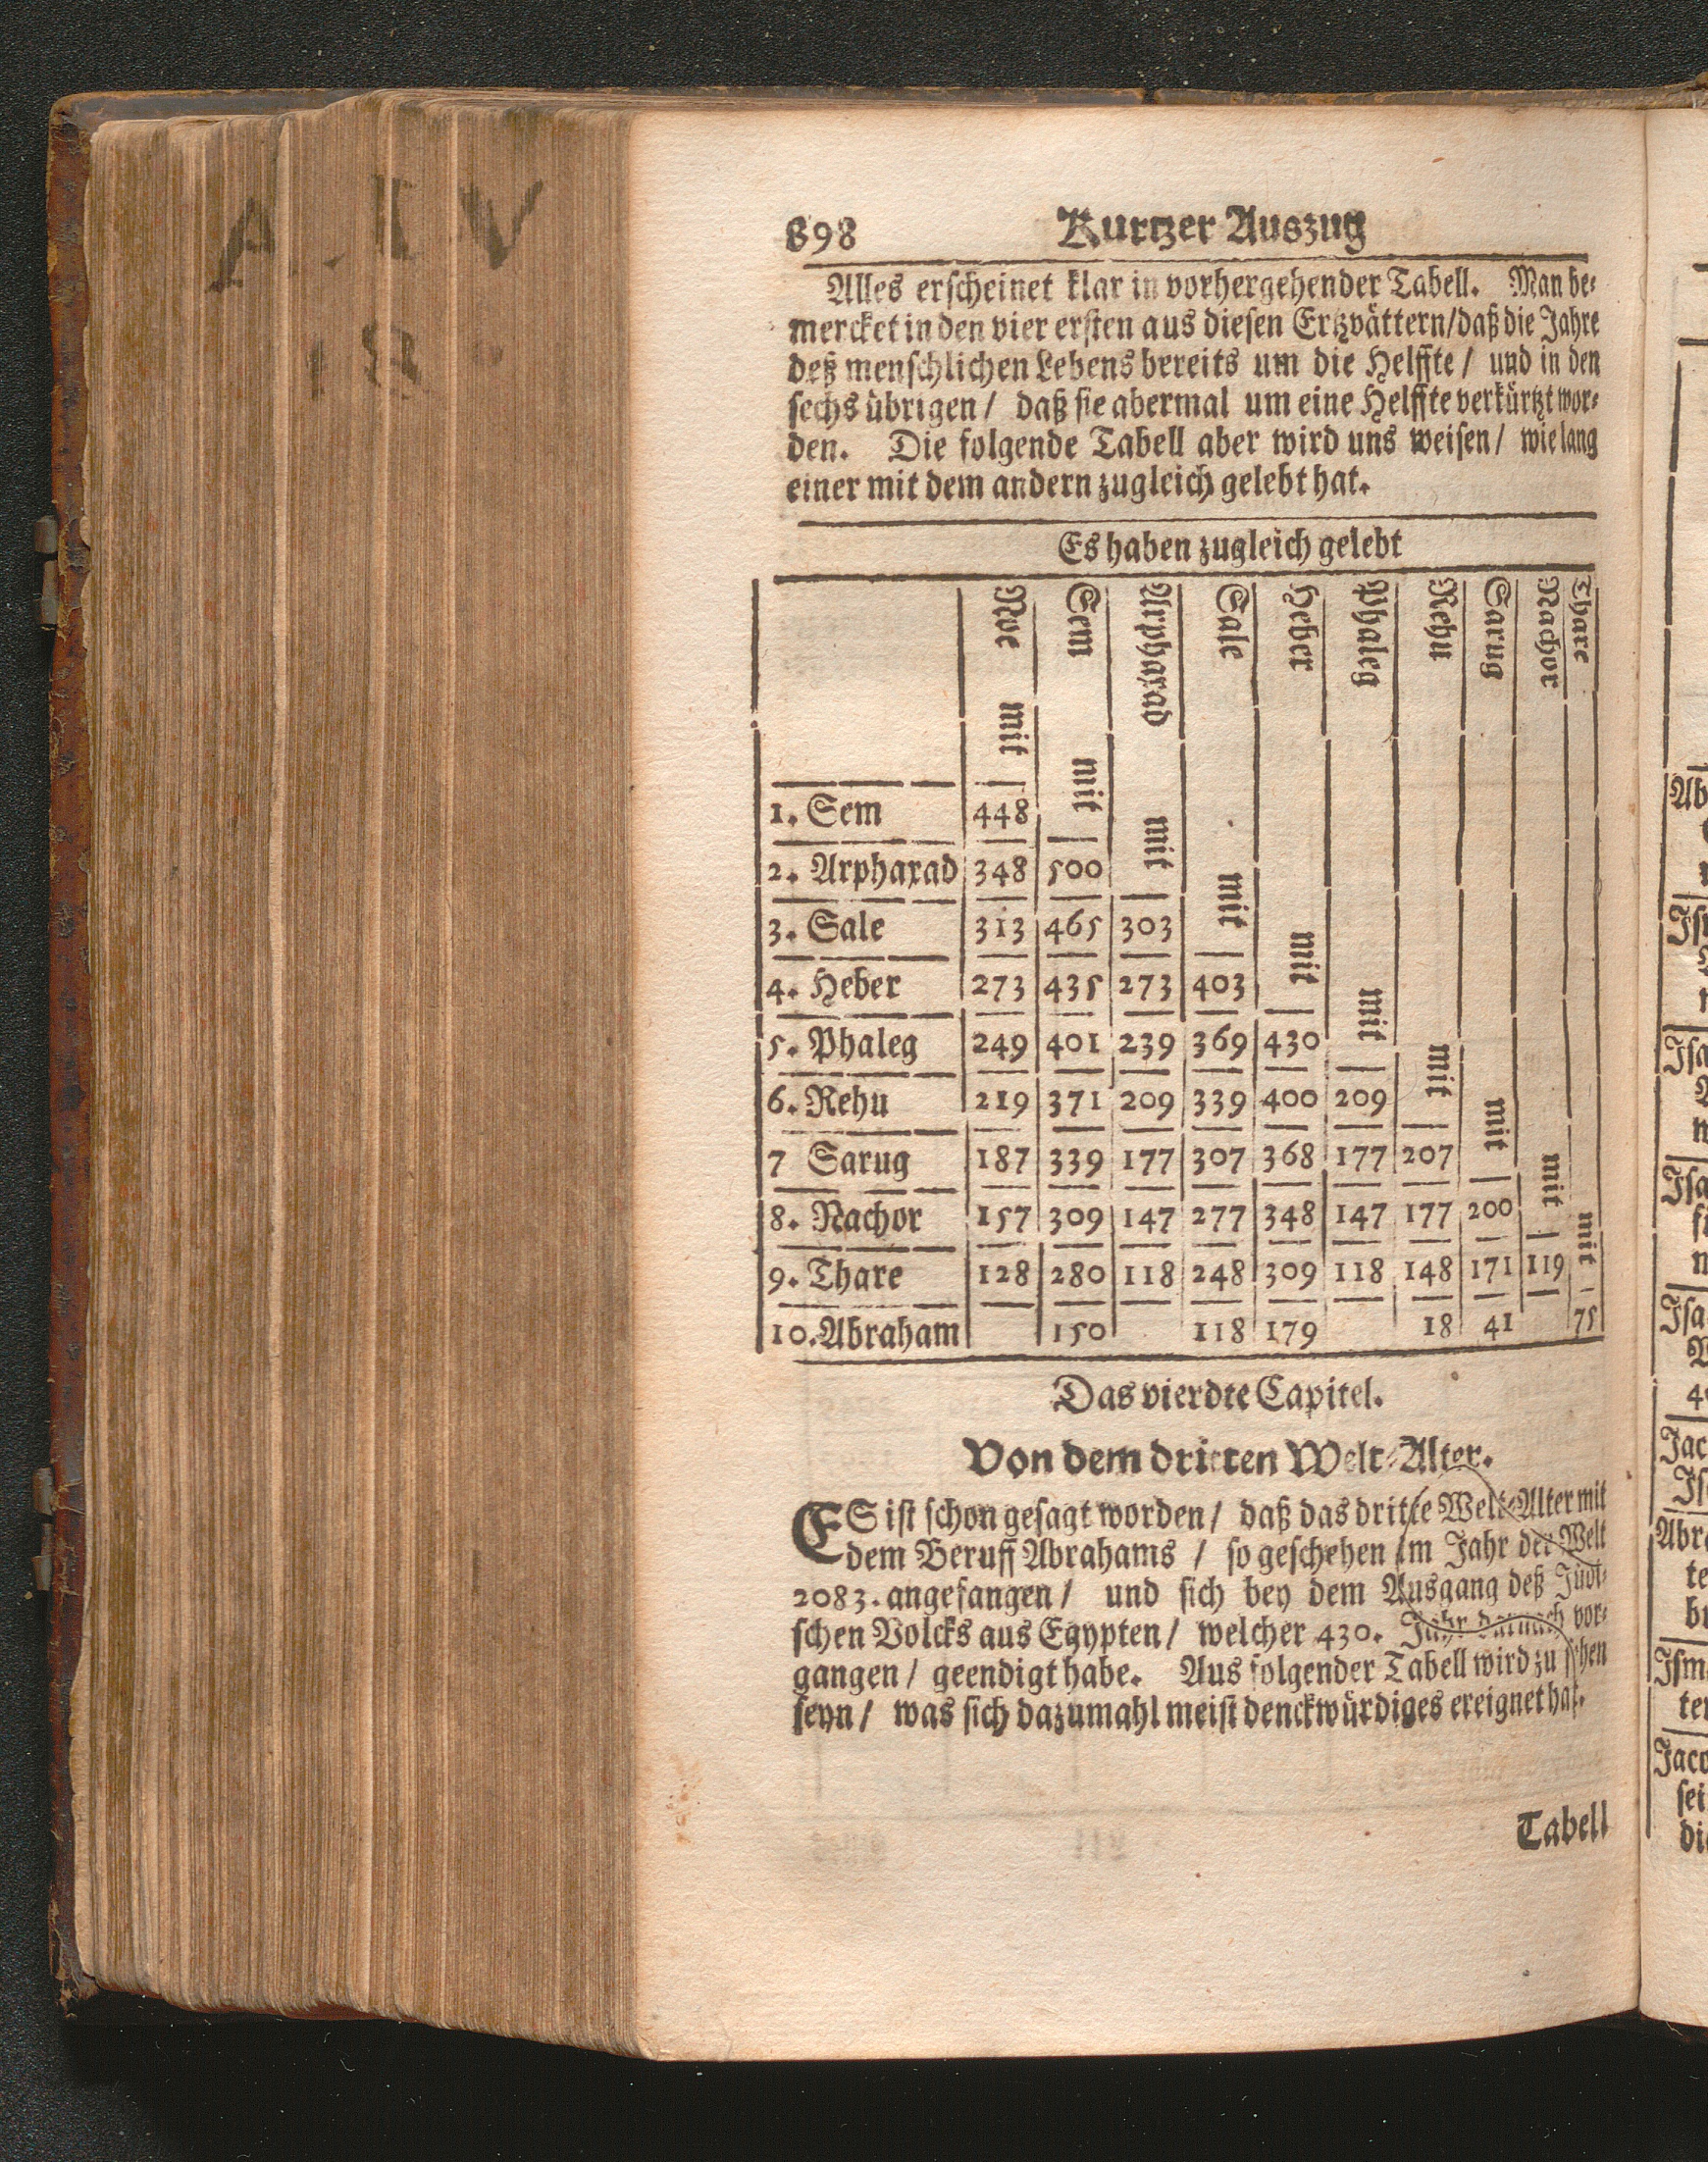 A. K V
898 Kurtzer Auszug
Alles erscheinet klar in vorhergehender Tabell. Man be-
mercket in den vier ersten aus diesen Ertzvättern/ daß die Jahre
deß menschlichen Lebens bereits um die Helffte / und in den
sechs übrigen / daß sie abermal um eine Helffte verkürtzt wor-
den. Die folgende Tabell aber wird uns weisen / wie lang
einer mit dem andern zugleich gelebt hat.
Es haben zugleich gelebt
Noe mit Sem mit Arpharad mit Sale mit Heber mit Phaleg mit Rehu mit Sarug mit Nachor mit Thare mit
1. Sem 448
2. Arpharad 348 500
3. Sale 313 465 303
4. Heber 273 435 273 403
5. Phaleg 249 401 239 369 430
6. Rehu 219 371 209 339 400 209
7 Sarug 187 339 177 307 368 177 207
8. Nachor 157 309 147 277 348 147 177 200
9. Thare 128 280 118 248 309 118 148 171 119
10. Abraham 150 118 179 18 41 75
Das vierdte Capitel.
Von dem dritten Welt-Alter.
ES ist schon gesagt worden / daß das dritte Welt-Alter mit
dem Beruff Abrahams / so geschehen im Jahr der Welt
2083. angefangen / und sich bey dem Ausgang deß Jüdi-
schen Volcks aus Egypten / welcher 430. Jahr darnach vor-
gangen / geendigt habe. Aus folgender Tabell wird zu sehen
seyn / was sich dazumahl meist denckwürdiges ereignet hat.
Tabell